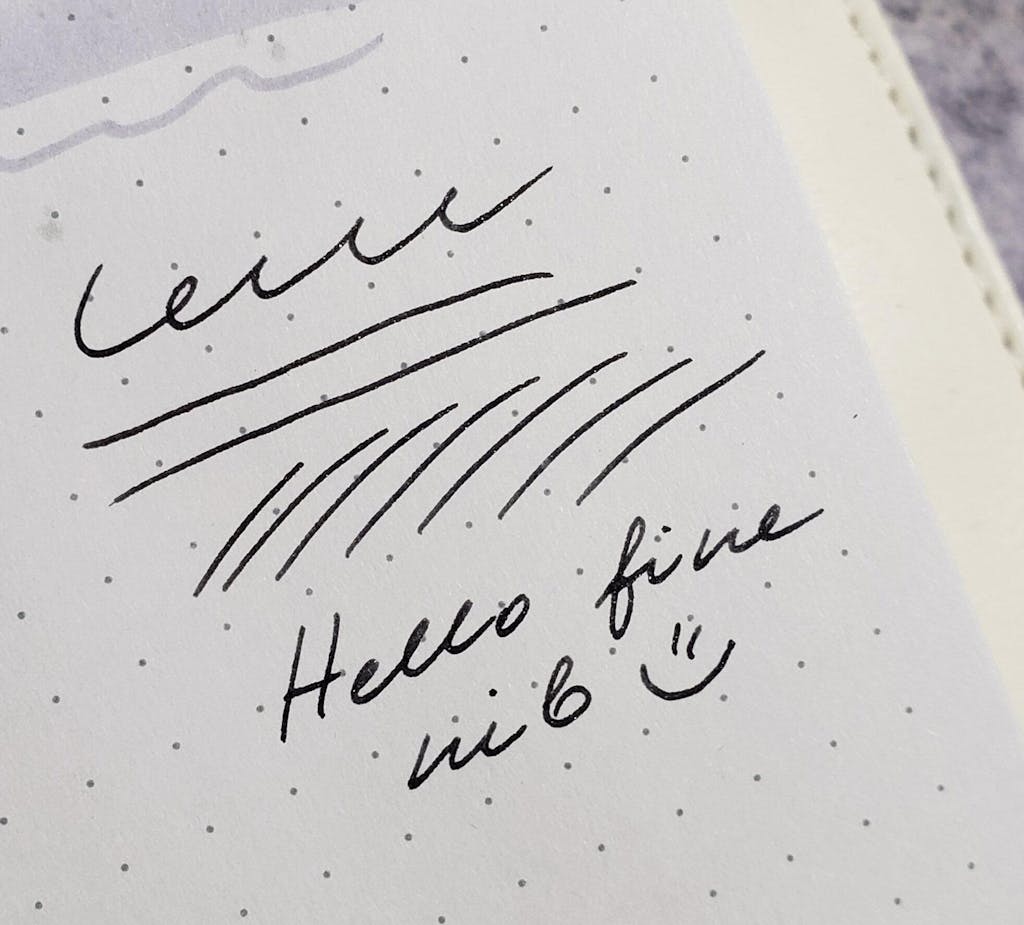 Hello fine
nib